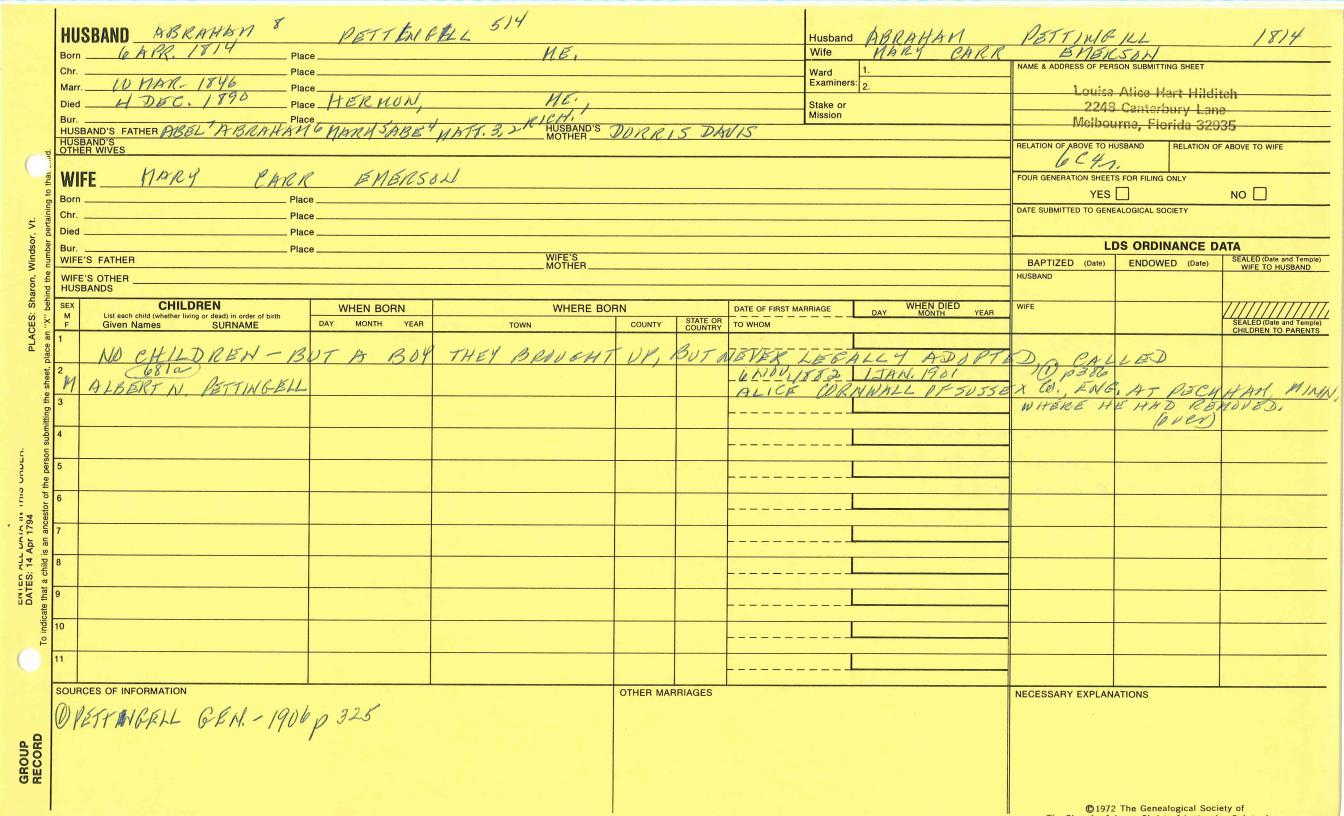 HUSBAND ABRAHAM 8 PETTENGELL 514
Born 6 APR. 1814 Place ME.
Chr. Place
Marr. 10 MAR. 1846 Place
Died 4 DEC. 1890 Place HERMON, ME.,
Bur. Place RICH.1
HUSBAND'S FATHER ABEL7 ABRAHAM6 MARK5 ABE4 MATT.3,2 HUSBAND'S MOTHER DORRIS DAVIS
HUSBAND'S OTHER WIVES
Husband ABRAHAM PETTINGILL 1814
Wife MARY CARR EMERSON
Ward Examiners: 1.
2.
Stake or Mission
NAME & ADDRESS OF PERSON SUBMITTING SHEET
Louisa Alice Hart Hilditch
2248 Canterbury Lane
Melbourne, Florida 32935
RELATION OF ABOVE TO HUSBAND RELATION OF ABOVE TO WIFE
6C4r.
FOUR GENERATION SHEETS FOR FILING ONLY
YES NO
DATE SUBMITTED TO GENEALOGICAL SOCIETY
WIFE MARY CARR EMERSON
Born Place
Chr. Place
Died Place
Bur. Place
WIFE'S FATHER WIFE'S MOTHER
WIFE'S OTHER HUSBANDS
LDS ORDINANCE DATA
BAPTIZED (Date) ENDOWED (Date) SEALED (Date and Temple) WIFE TO HUSBAND
HUSBAND
WIFE
SEALED (Date and Temple) CHILDREN TO PARENTS
SEX M F CHILDREN WHEN BORN WHERE BORN DATE OF FIRST MARRIAGE WHEN DIED
List each child (whether living or dead) in order of birth
Given Names SURNAME DAY MONTH YEAR TOWN COUNTY STATE OR COUNTRY TO WHOM DAY MONTH YEAR
1 NO CHILDREN - BUT A BOY THEY BROUGHT UP, BUT NEVER LEGALLY ADOPTED, CALLED
2 681a 6 NOV. 1882 1 JAN. 1901 (1) p386
M ALBERT N. PETTINGELL ALICE CORNWALL OF SUSSEX CO., ENG. AT PECKHAM, MINN,
3 WHERE HE HAD REMOVED.
(over)
4
5
6
7
8
9
10
11
SOURCES OF INFORMATION OTHER MARRIAGES NECESSARY EXPLANATIONS
(1) PETTINGELL GEN. - 1906 p 325
©1972 The Genealogical Society of
PLACES: Sharon, Windsor, Vt.
ENTER ALL DATA IN THIS ORDER:
DATES: 14 Apr 1794
To indicate that a child is an ancestor of the person submitting the sheet, place an "X" behind the number pertaining to that
GROUP RECORD